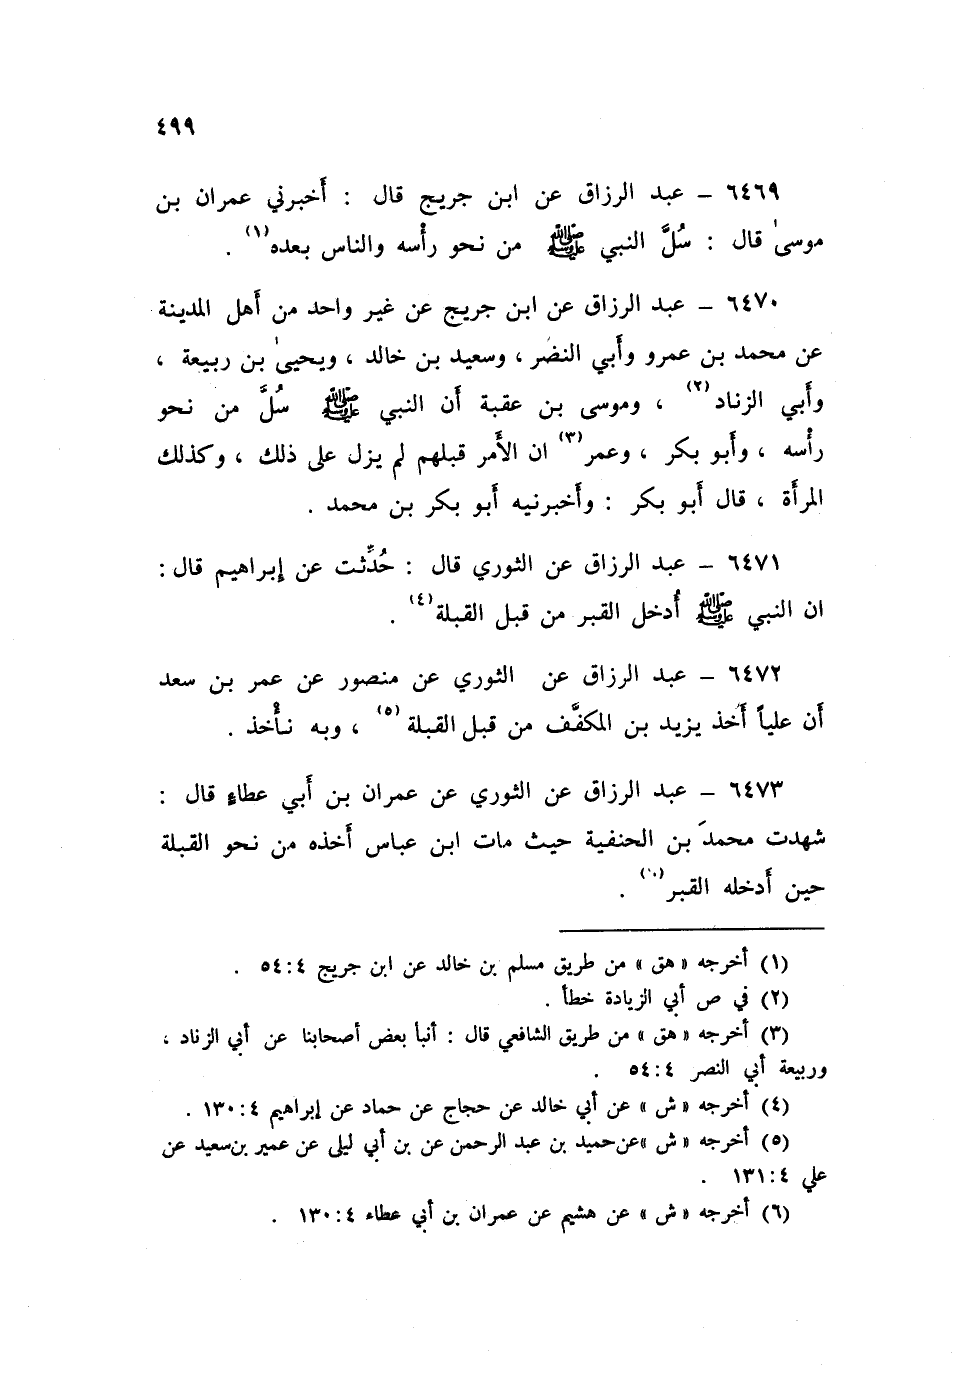 ٤٩٩
٦٤٦٩ – عبد الرزاق عن ابن جريج قال : أخبرني عمران بن
موسىٰ قال : سُلَّ النبي ﷺ من نحو رأسه والناس بعده(١) .
٦٤٧٠ – عبد الرزاق عن ابن جريج عن غير واحد من أهل المدينة
عن محمد بن عمرو وأبي النضر ، وسعيد بن خالد ، ويحيىٰ بن ربيعة ،
وأبي الزناد(٢) ، وموسى بن عقبة أن النبي ﷺ سُلَّ من نحو
رأسه ، وأبو بكر ، وعمر(٣) ان الأمر قبلهم لم يزل على ذلك ، وكذلك
المرأة ، قال أبو بكر : وأخبرنيه أبو بكر بن محمد .
٦٤٧١ – عبد الرزاق عن الثوري قال : حُدِّثت عن إبراهيم قال :
ان النبي ﷺ أُدخل القبر من قبل القبلة(٤) .
٦٤٧٢ – عبد الرزاق عن الثوري عن منصور عن عمر بن سعد
أن علياً أَخذ يزيد بن المكفَّف من قبل القبلة(٥) ، وبه نأْخذ .
٦٤٧٣ – عبد الرزاق عن الثوري عن عمران بن أبي عطاءٍ قال :
شهدت محمدَ بن الحنفية حيث مات ابن عباس أخذه من نحو القبلة
حين أدخله القبر .
(١) أخرجه « هق » من طريق مسلم بن خالد عن ابن جريج ٤ : ٥٤ .
(٢) في ص أبي الزيادة خطأ .
(٣) أخرجه « هق » من طريق الشافعي قال : أنبأ بعض أصحابنا عن أبي الزناد ،
وربيعة أبي النصر ٤ : ٥٤ .
(٤) أخرجه « ش » عن أبي خالد عن حجاج عن حماد عن إبراهيم ٤ : ١٣٠ .
(٥) أخرجه « ش » عن حميد بن عبد الرحمن عن بن أبي ليلى عن عمير بن سعيد عن
علي ٤ : ١٣١ .
(٦) أخرجه « ش » عن هشيم عن عمران بن أبي عطاء ٤ : ١٣٠ .